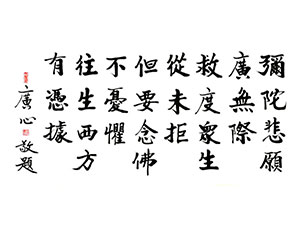 彌陀悲願
廣無際
救度眾生
從未拒
但要念佛
不憂懼
往生西方
有憑據
廣心敬題